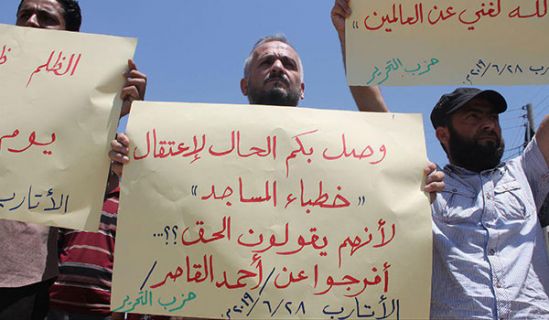 الله لغني عن العالمين"
حزب التحرير
الأتارب ٢٨/٦/٢٠١٩م
الظلم
يوم
الأتارب
وصل بكم الحال لإعتقال
"خطباء المساجد"
لأنهم يقولون الحق؟؟...
أفرجوا عن/أحمد القاصر/
حزب التحرير
الأتارب ٢٨/٦/٢٠١٩م